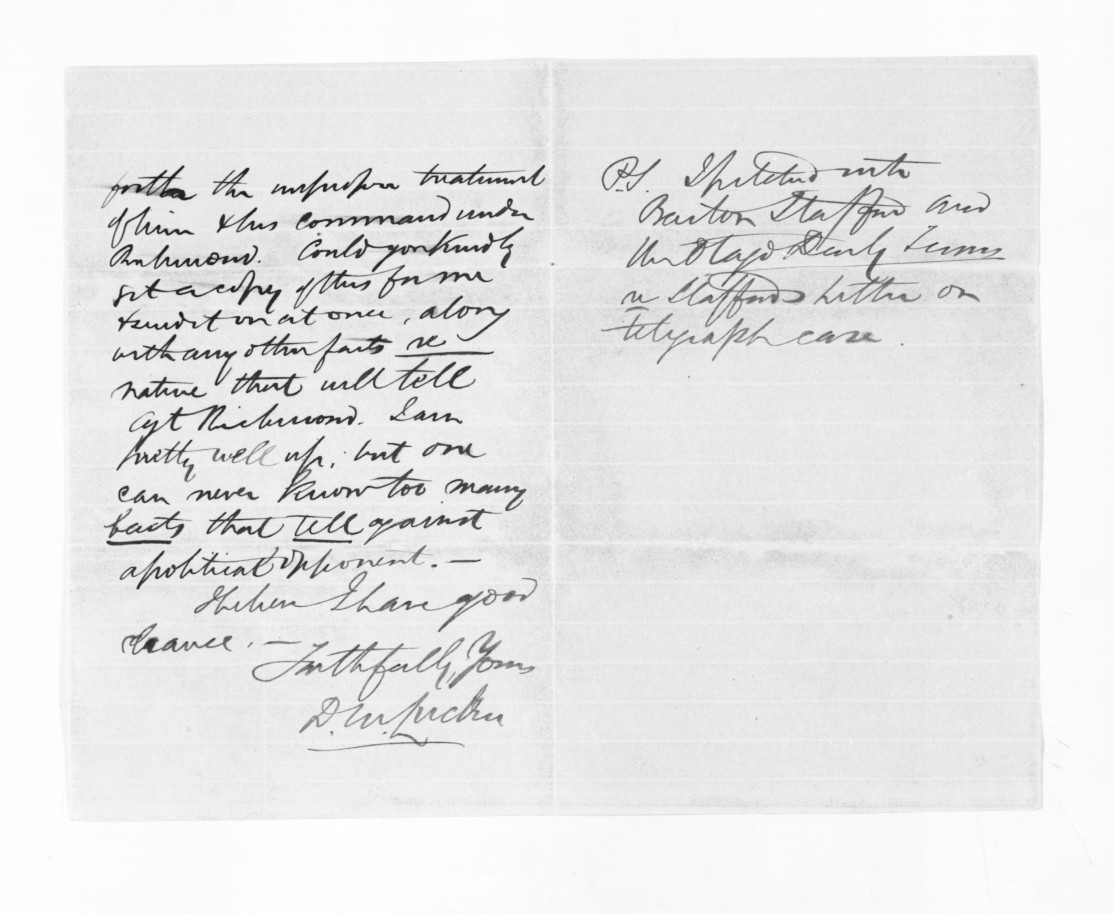 forth the improper treatment
of him & his command under
Richmond. Could you kindly
get a copy of this for me
& send it on at once, along
with any other facts re
native that will tell
agt Richmond. I am
pretty well up; but one
can never know too many
facts that tell against
a political opponent. —
I believe I have good
chance. —
Faithfully Yours
D. M. Luckie
P.S. I pitched into
Barton Stafford and
the Otago Daily Times
re Staffords letter on
telegraph case.